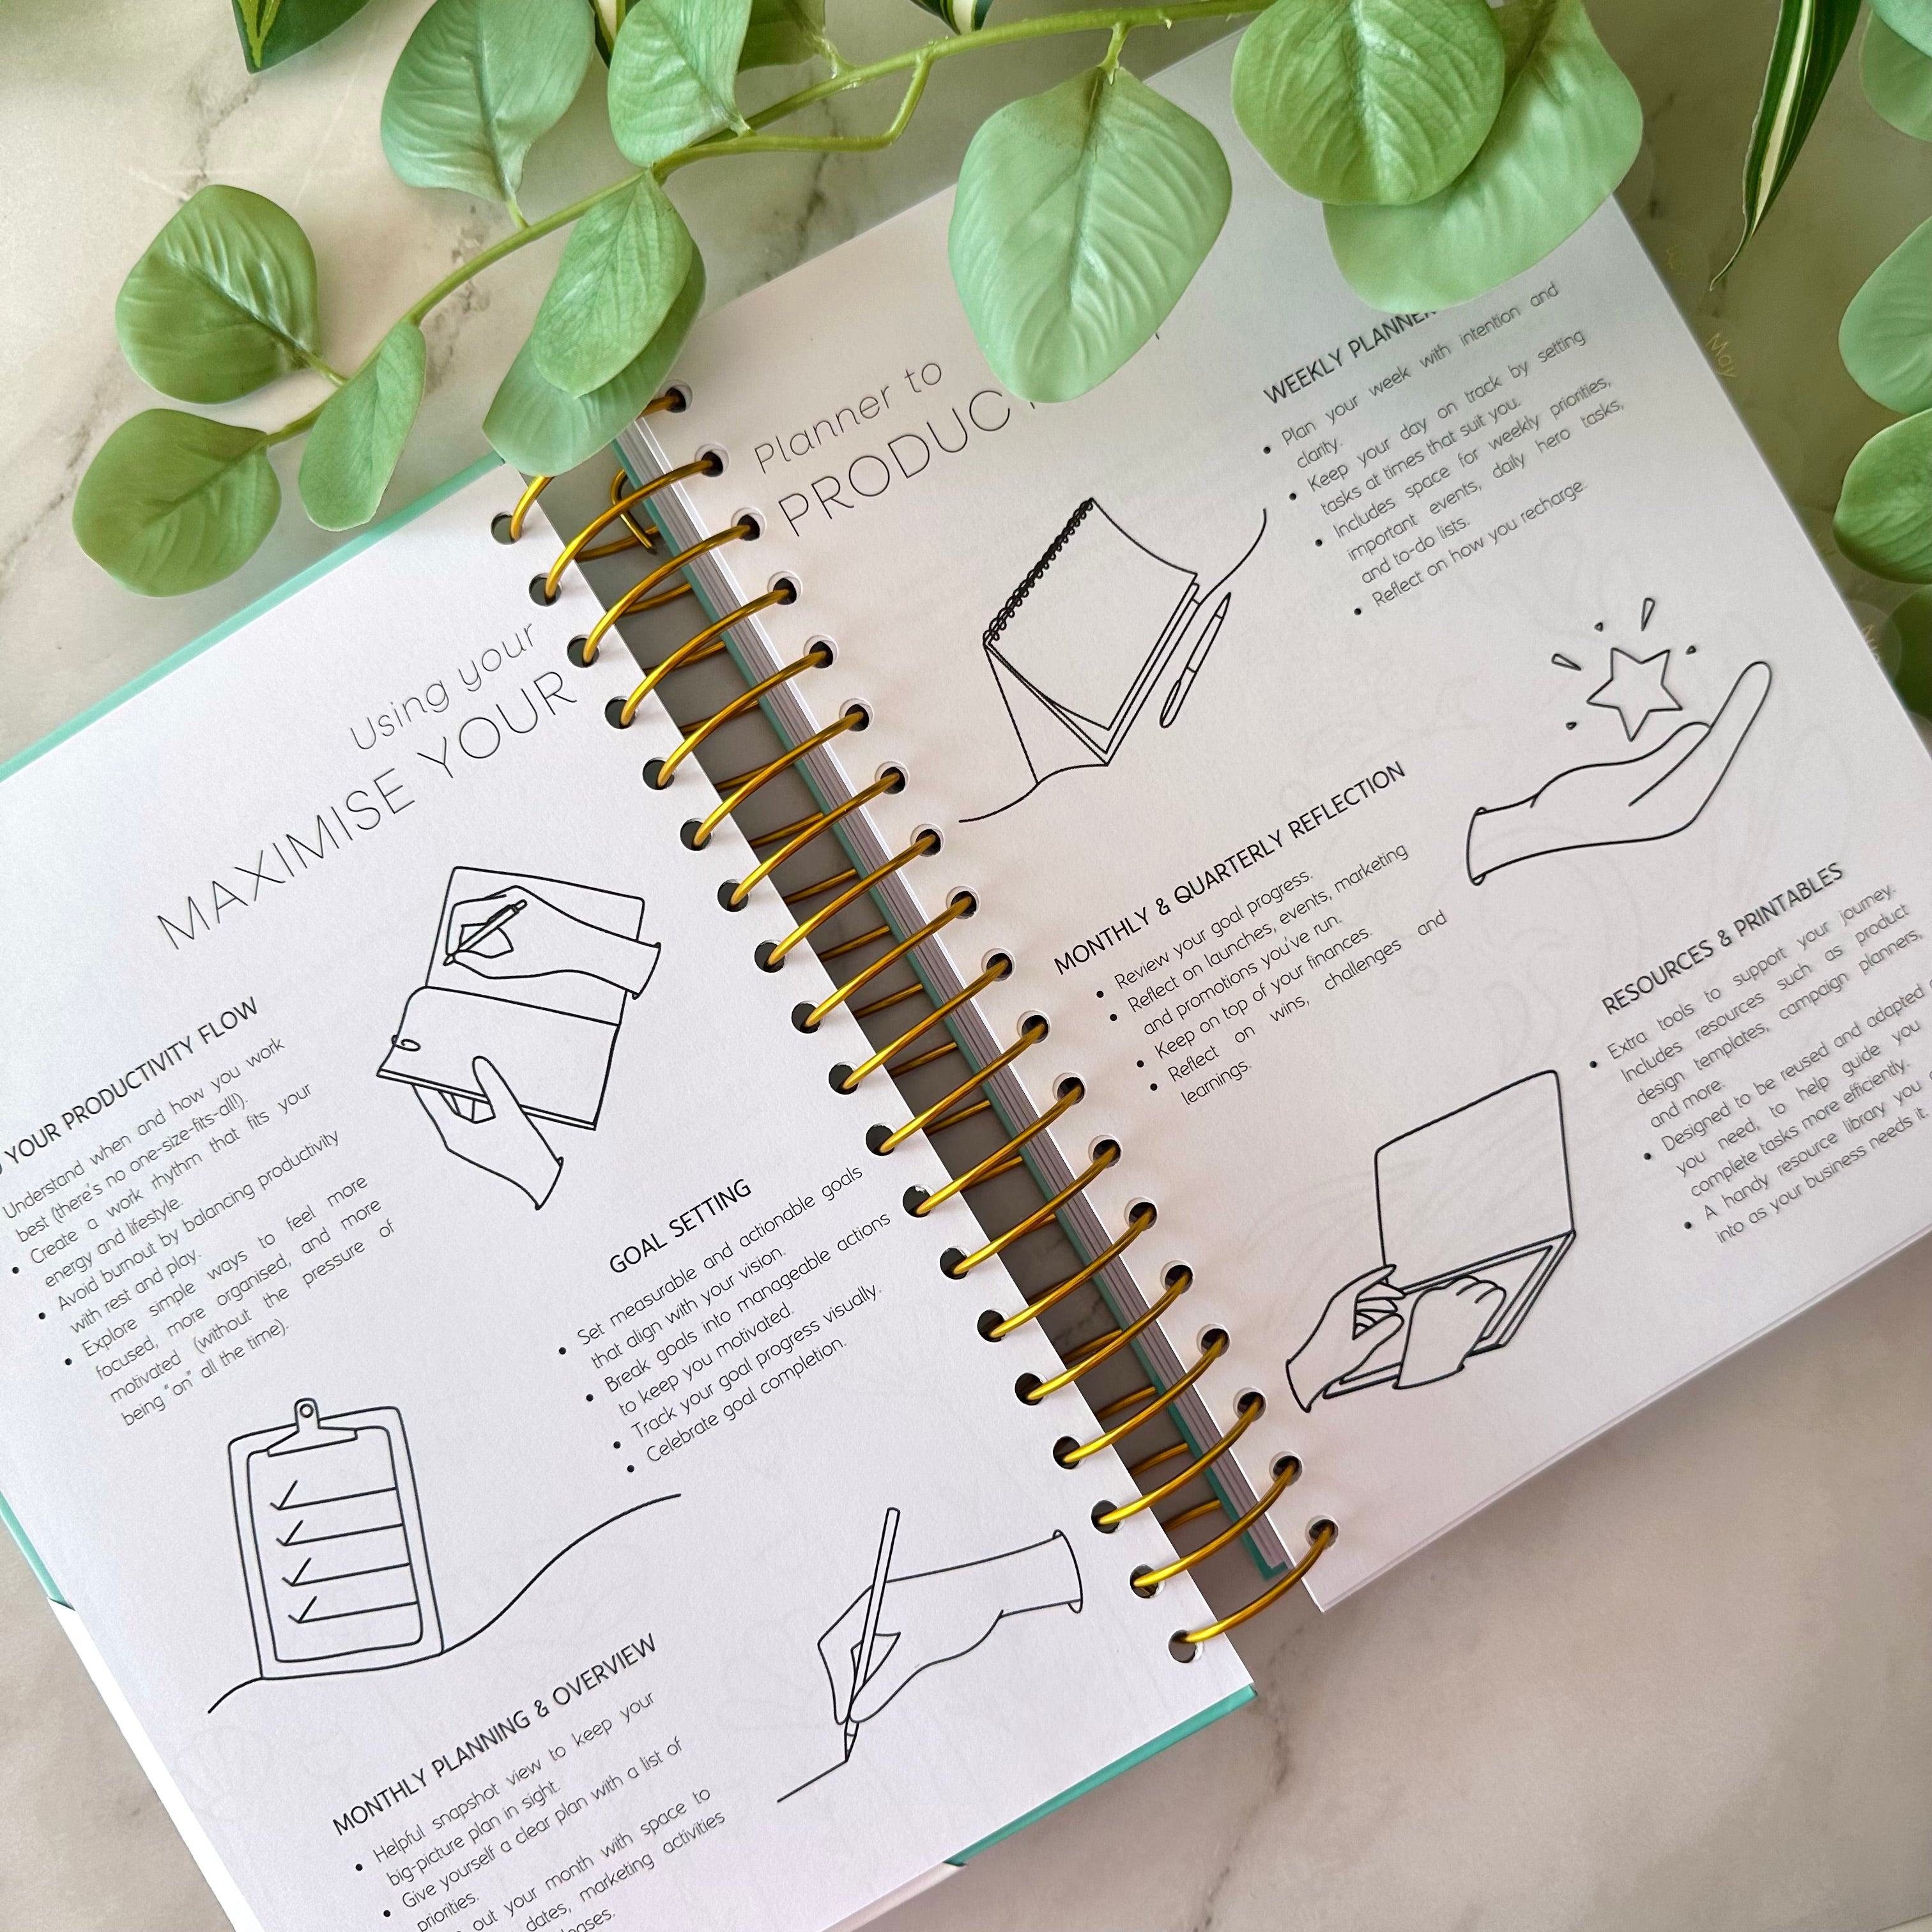 Using your
MAXIMISE YOUR
YOUR PRODUCTIVITY FLOW
Understand when and how you work
best (there's no one-size-fits-all!).
• Create a work rhythm that fits your
energy and lifestyle.
• Avoid burnout by balancing productivity
with rest and play.
• Explore simple ways to feel more
focused, more organised, and more
motivated (without the pressure of
being "on" all the time).
GOAL SETTING
• Set measurable and actionable goals
that align with your vision.
• Break goals into manageable actions
to keep you motivated.
• Track your goal progress visually.
• Celebrate goal completion.
MONTHLY PLANNING & OVERVIEW
• Helpful snapshot view to keep your
big-picture plan in sight.
• Give yourself a clear plan with a list of
priorities.
out your month with space to
dates, marketing activities
Planner to
PRODUC
WEEKLY PLANNER
• Plan your week with intention and
clarity.
• Keep your day on track by setting
tasks at times that suit you.
• Includes space for weekly priorities,
important events, daily hero tasks,
and to-do lists.
• Reflect on how you recharge.
MONTHLY & QUARTERLY REFLECTION
• Review your goal progress.
• Reflect on launches, events, marketing
and promotions you've run.
• Keep on top of your finances.
• Reflect on wins, challenges and
learnings.
RESOURCES & PRINTABLES
• Extra tools to support your journey.
Includes resources such as product
design templates, campaign planners,
and more.
• Designed to be reused and adapted
you need, to help guide you
complete tasks more efficiently.
• A handy resource library you
into as your business needs it.
May